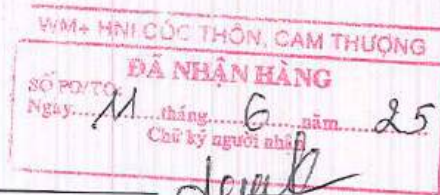 WM+ HNI CỐC THÔN, CAM THƯỢNG
ĐÃ NHẬN HÀNG
SỐ PO/TO:
Ngày 11 tháng 6 năm 25
Chữ ký người nhận